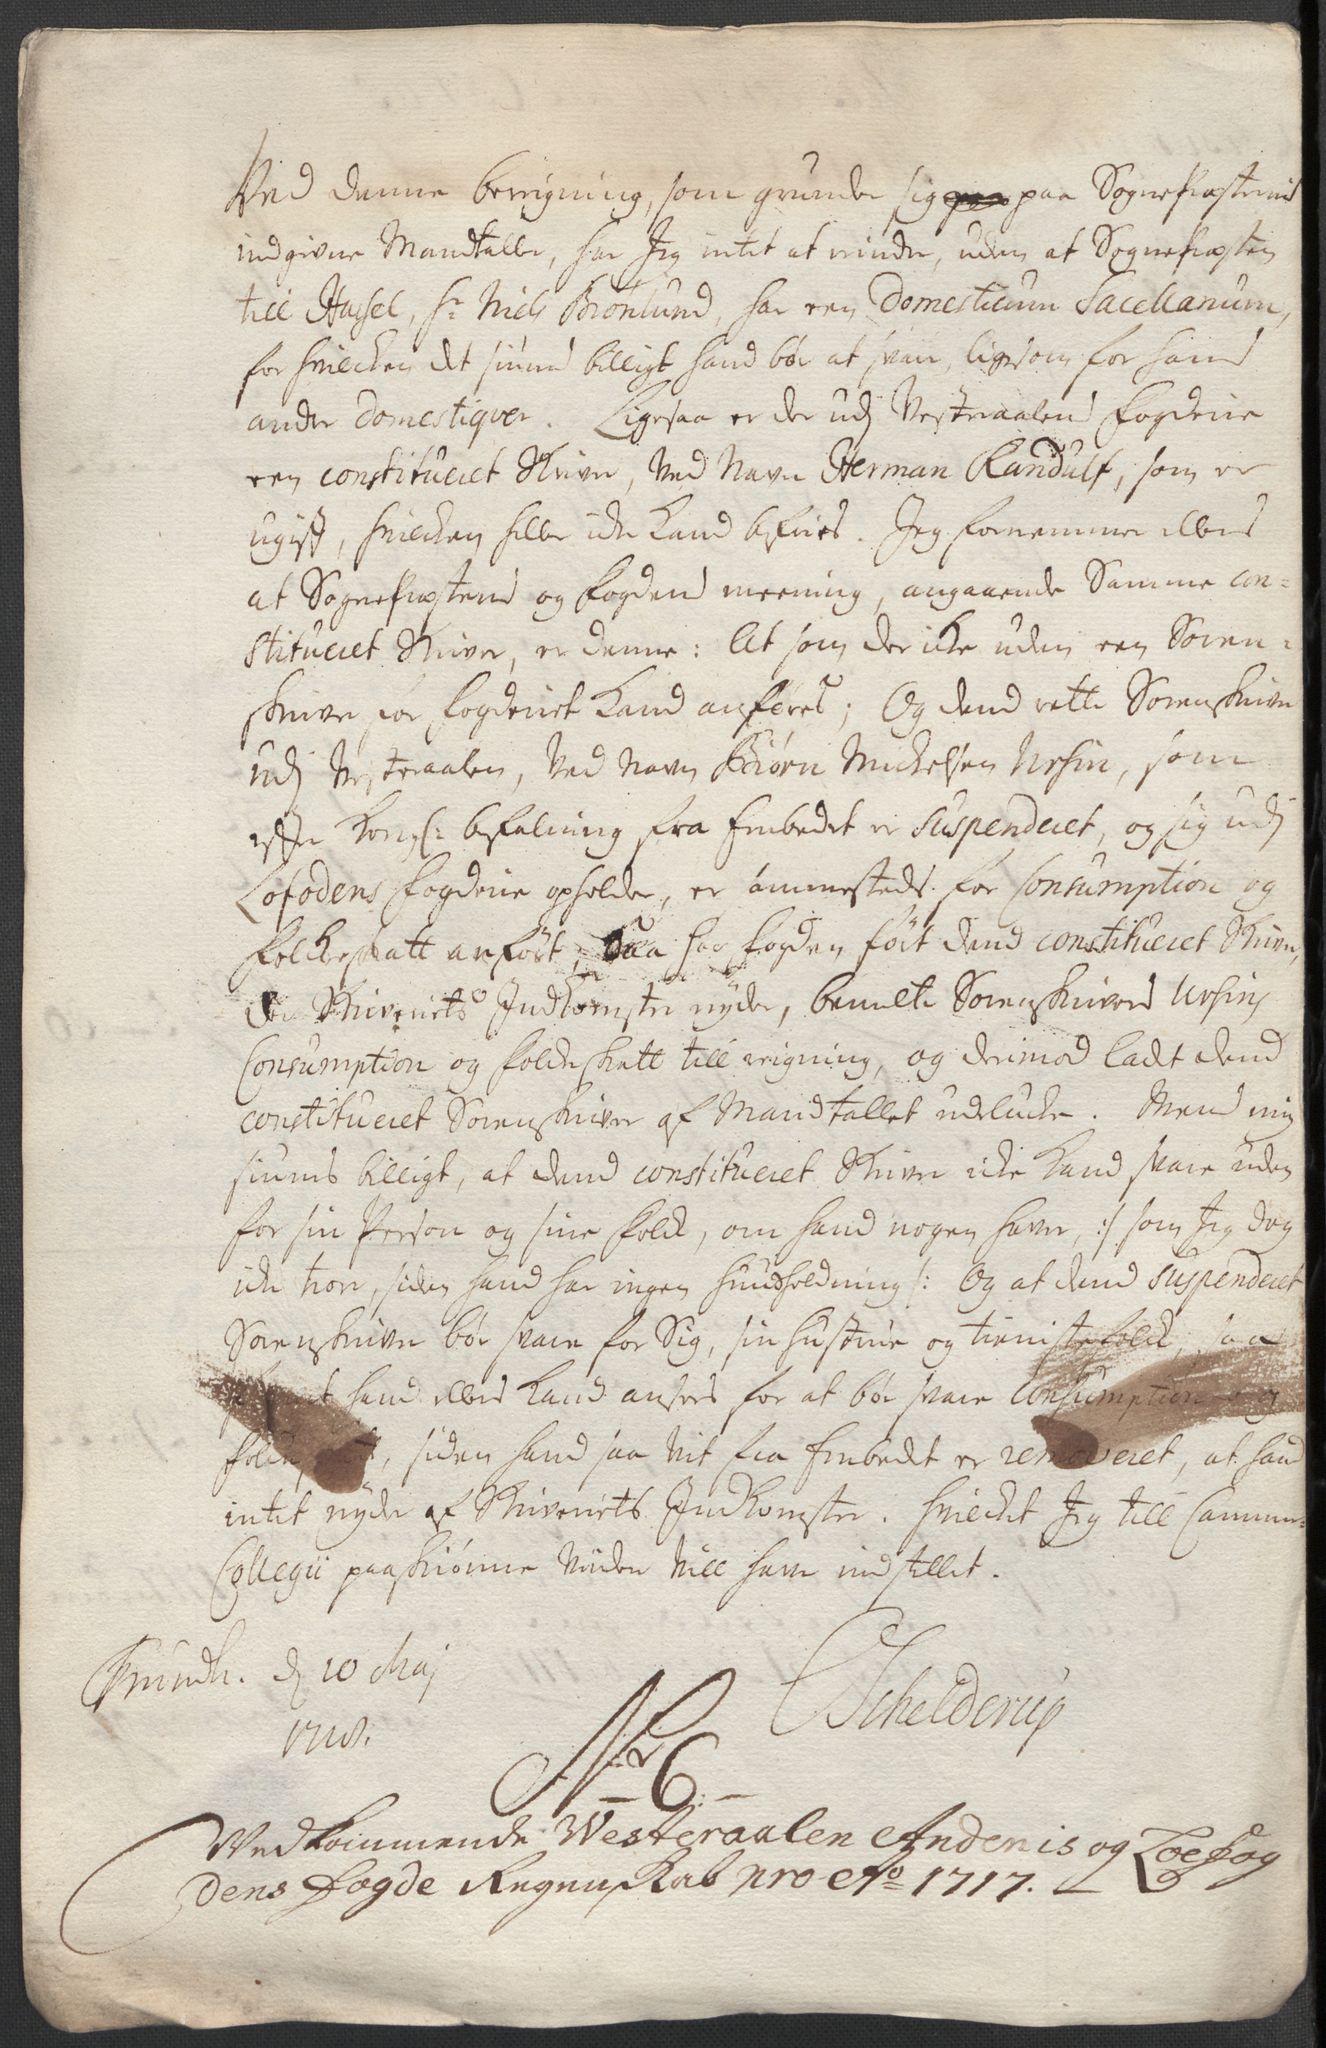 Ved denne beregning, som grunder sig paa Sognepræsternis
indgivne Mandtaller, har Jeg intet at erindre, uden at Sognepræsten
till Hassel, Hr Niels Brønlund, har een Domesticum Sacellanum,
for hvilcken det siunis billigt hand bør at svare, ligesom for hans
andre Domestiqver. Ligesaa er der udj Vesteraalens Fogderie
een constitueret Skriver, ved Navn Herman Randulf, som er
ugift, hvilcken heller icke kand befries. Jeg fornemmer ellers
at Sognepræstens og Fogdens meening, angaaende Samme con=
stitueret Skriver, er denne: At som der icke uden een Soren=
skriver for Fogderiet kand anføres; Og dend rette Sorenskriver
udj Vesteraalen, ved navn Biørn Mickelsen Ursin, som
efter Kongl: befalning fra Embedet er suspenderet, og sig udj
Lofodens Fogderie opholder, er sammesteds for Consumption og
Folckeskatt anført, Saa har Fogden ført dend constitueret Skriver,
der Skriveriets Indkomster nyder, bemelte Sorenskrivers Ursins
Consumption og Folckeskatt till reigning, og derimod ladt dend
constitueret Sorenskriver af Mandtallet udelucke. Mend mig
siunis billigt, at dend constitueret Skriver icke kand svare uden
for sin Person og sine Folck, om hand nogen haver, :/ som Jeg dog
icke troer, siden hand har ingen Huusholdning /: Og at dend suspenderet
Sorenskriver bør svare for Sig, sin Hustrue og tienistefolck, saa
hand ellers kand ansees for at bør svare Consumption og
siden hand saa vit fra Embedet er removeret, at hand
intet nyder af Skriveriets Indkomster. Hvilcket Jeg till Cammer=
Collegii paaskiønne viidere vill have indstillet.
Trundh. d 10 Maj
1718.
Schelderup
No 6
Vedkommende Westeraalen Andenis og Loefog
dens Fogde Regenskab pro Ao 1717.